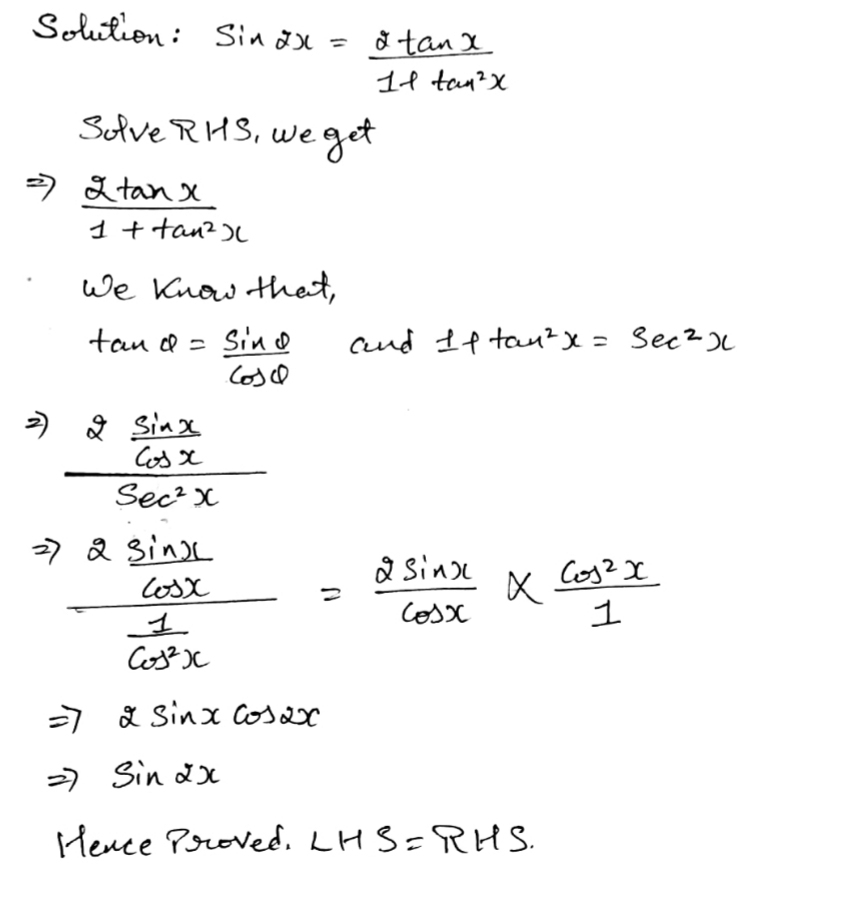 Solution: Sin 2x = 2 tan x / 1+ tan²x
Solve RHS, we get
⇒ 2 tan x / 1 + tan²x
We know that,
tan θ = Sin θ / Cos θ and 1+ tan²x = Sec²x
⇒ 2 Sinx / Cos x / Sec²x
⇒ 2 Sinx / Cosx / 1 / Cos²x = 2 Sinx / Cosx × Cos²x / 1
⇒ 2 Sinx Cos2x
⇒ Sin 2x
Hence Proved. LHS = RHS.